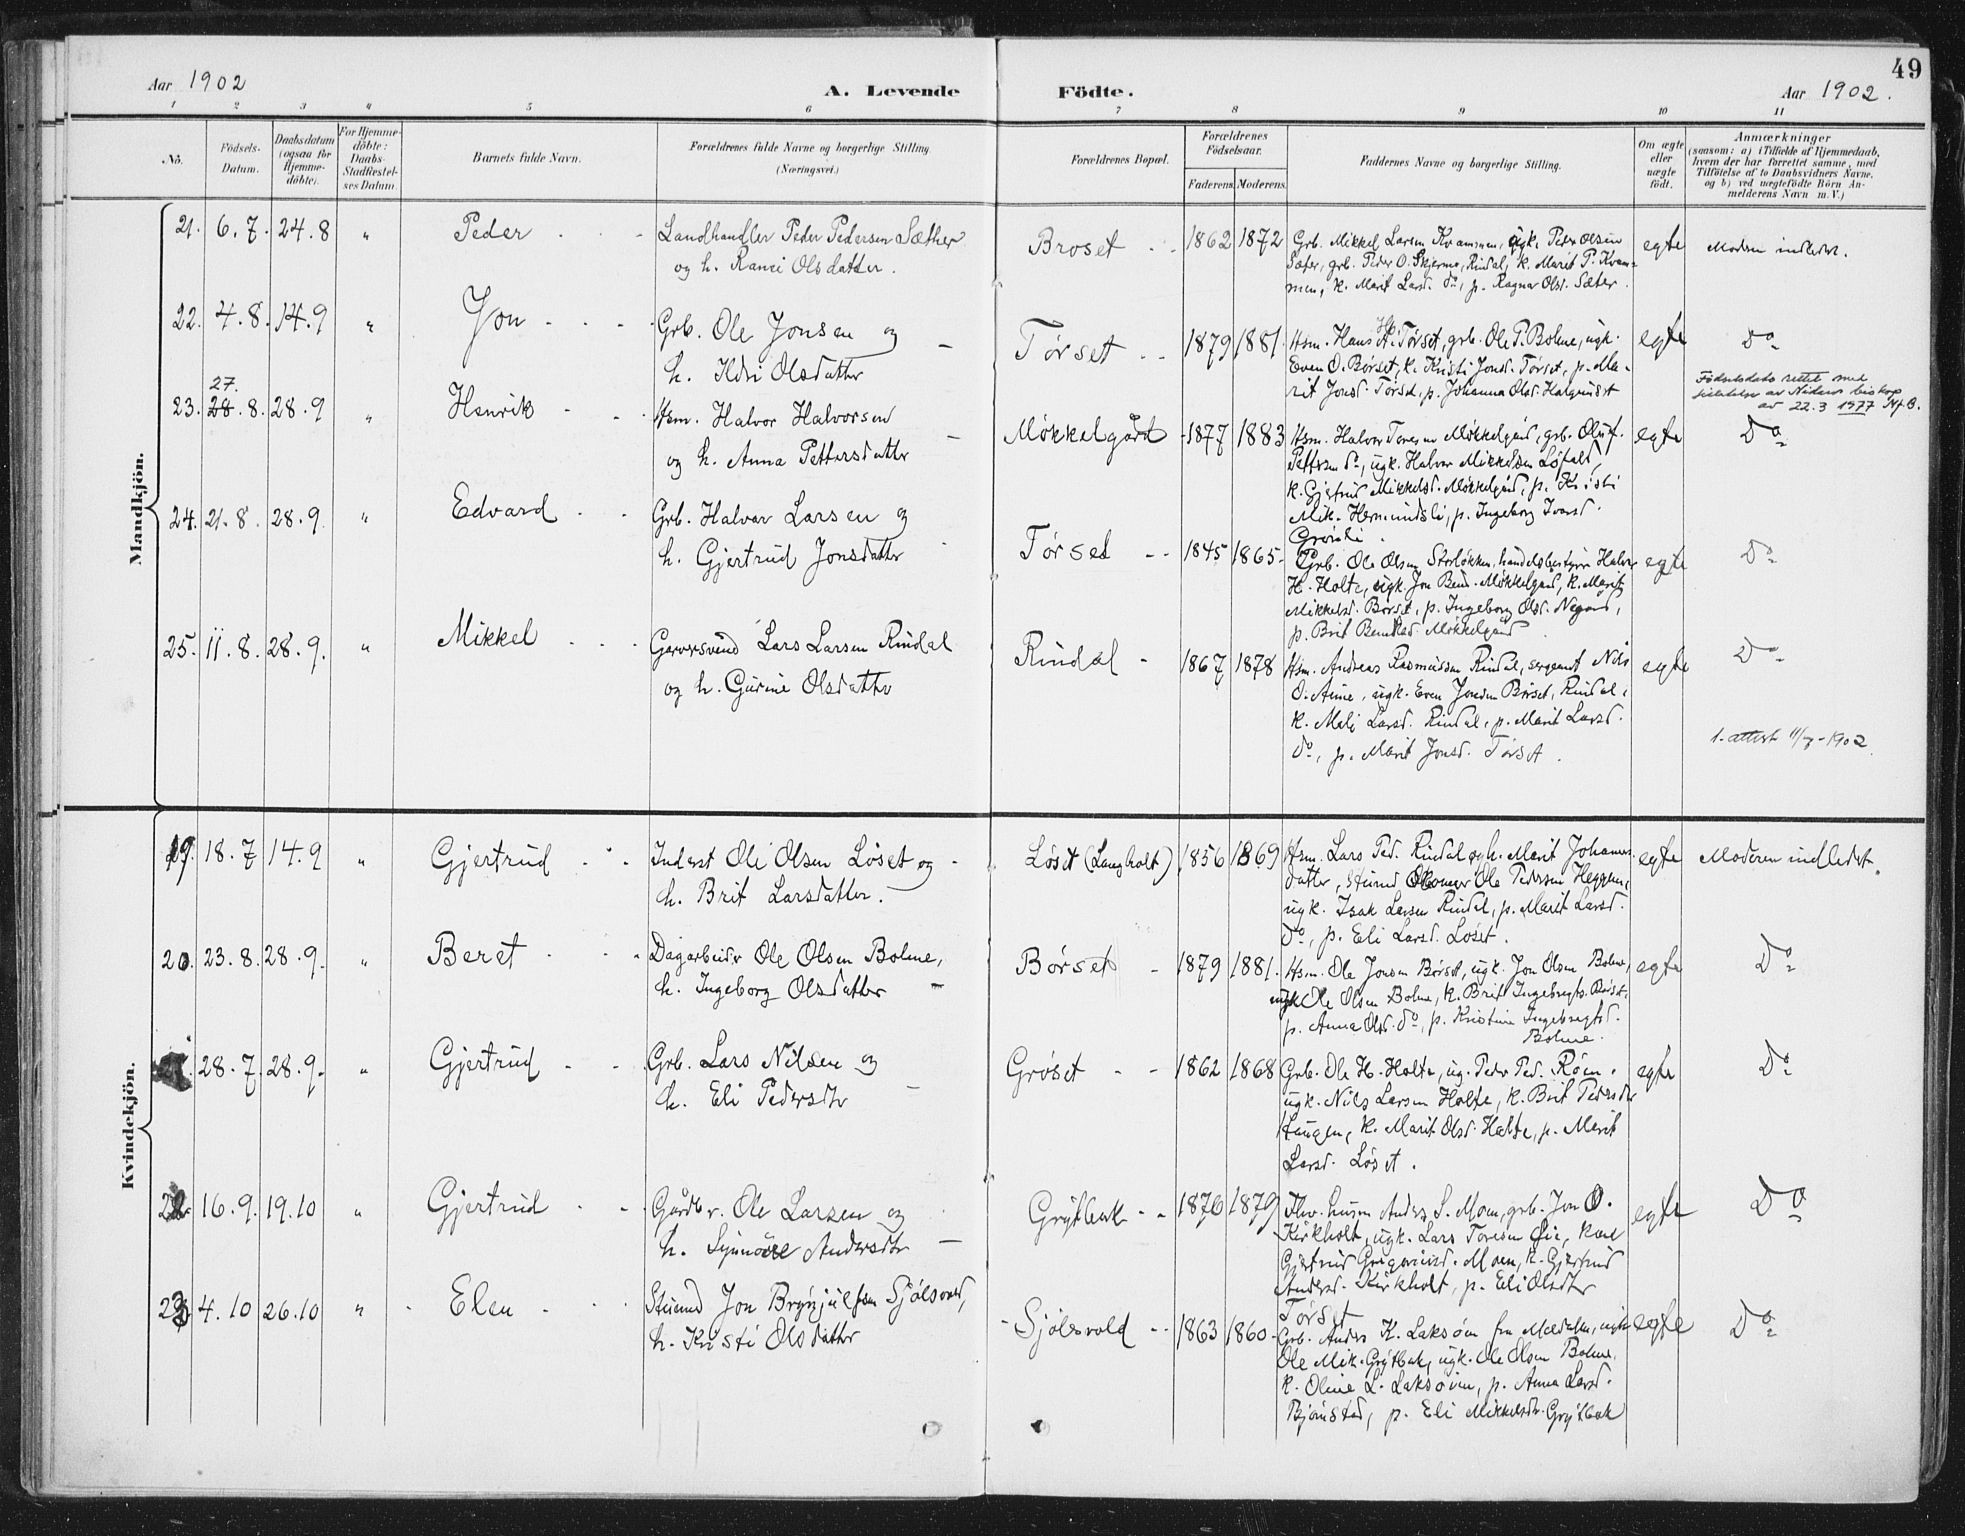 Aar 1902
A. Levende
Födte.
49
Aar 1902.
1 2 3 4 5 6 7 8 9 10 11
No.
Födsels-
Datum.
Daabsdatum
(ogsaa for
Hjemme-
döbte).
For Hjemme-
döbte:
Daabs-
Stadfæstel-
ses Datum.
Barnets fulde Navn.
Forældrenes fulde Navne og borgerlige Stilling.
(Næringsvei.)
Forældrenes Bopæl.
Forældrenes
Födselsaar.
Faderens. Moderens.
Faddernes Navne og borgerlige Stilling.
Om ægte
eller
uægte
födt.
Anmærkninger
(saasom: a) i Tilfælde af Hjemmedaab,
hvem der har forrettet samme, med
Tilföielse af to Daabsvidners Navne,
og b) ved uegtefödte Börn An-
melderens Navn m. V.)
Mandkjön.
21. 6.7. 24.8 " Peder
Landhandler Peder Pedersen Sæther
og h. Ranei Olsdatter.
Broset 1862 1872
Grb. Mikkel Larsen Kvammen, ugk. Peder Olsen
Sæter, grb. Peder O. Skjermo, Rindal, k. Marit P. Kvam-
men, k. Marit Larsd. do, p. Ragna Olsd. Sæter.
egte
Moderen indledet.
22. 4.8. 14.9 " Jon
Grb. Ole Jonsen og
h. Ildri Olsdatter
Tørset 1879 1881.
Hsm. Hans H. Tørset, grb. Ole P. Bolme, ugk.
Even O. Børset, k. Kristi Jonsd. Tørset, p. Ma-
rit Jonsd. Tørset, p. Johanna Olsd.
egte
Do
Fødselsdato rettet med
av Nidaros biskop
av 22.3 1977
27.
23. 28.8. 28.9 " Henrik
Hsm. Halvor Halvorsen
og h. Anna Pettersdatter
Møkkelgård 1877 1883
Hsm. Halvor Toresen Møkkelgård, grb. Oluf
Pettersen do, ugk. Halvor Mikkelsen Løfald,
k. Gjertrud Mikkelsd. Møkkelgård, p. Kristi
Mik. Hermundsli, p. Ingeborg Ivarsd.
egte
Do
24. 21.8. 28.9. " Edvard
Grb. Halvor Larsen og
h. Gjertrud Jonsdatter
Tørset 1845 1865.
Grb. Ole Olsen Storløkken, handelsbestyrer Halvor
H. Holte, ugk. Jon Bend. Møkkelgård, k. Marit
Mikkelsd. Børset, p. Ingeborg Olsd. Negård,
p. Brit Møkkelgård
egte
Do
25. 11.8. 28.9. " Mikkel
Garversvend Lars Larsen Rindal
og h. Gurine Olsdatter
Rindal 1867 1878
Hsm. Andreas Rasmussen Rindal, sergeant Nils
O. Aune, ugk. Even Jonsen Børset, Rindal,
k. Mali Larsd. Rindal, p. Marit Larsd.
do, p. Marit Jonsd. Tørset.
egte
Do
1. attest 11/7-1902
Kvindekjön.
19. 18.7 14.9 " Gjertrud
Inderst Ole Olsen Løset og
h. Brit Larsdatter.
Løset (Langholt) 1856 1869
Hsm. Lars Ped. Rindal og h. Marit Johannes-
datter, Ole Pedersen Heggem,
ugk. Isak Larsen Rindal, p. Marit Larsd.
do, p. Eli Larsd. Løset.
egte
Moderen indledet.
20. 23.8. 28.9. " Beret
Dagarbeider Ole Olsen Bolme,
h. Ingeborg Olsdatter
Børset 1879 1881.
Hsm. Ole Jonsen Børset, ugk. Jon Olsen Bolme,
ugk. Ole Olsen Bolme, k. Brit Ingebregts. Børset,
p. Anna Olsd. do, p. Kristine Ingebregtsd.
Bolme.
egte
Do
21. 28.7. 28.9. " Gjertrud
Grb. Lars Nilsen og
h. Eli Pedersdtr
Grøset 1862 1868
Grb. Ole H. Holte, ug. Peder Ped. Røen,
ugk. Nils Larsen Holte, k. Brit Pedersdtr
Haugen, k. Marit Olsd. Holte, p. Marit
Larsd. Løset.
egte
Do
22. 16.9. 19.10 " Gjertrud
Gårdbr. Ole Larsen og
h. Synnøve Andersdtr
Grytbak 1876 1879
Fhv. husm. Anders S. Moen, grb. Jon O.
Kirkholt, ugk. Lars Toresen Øie, kone
Gjertrud Moen, k. Gjertrud
Andersd. Kirkholt, p. Eli Olsdtr
Tørset
egte
Do
23. 4.10 26.10 " Elen
Jon Brynjulfsen Sjølsvold,
h. Kristi Olsdatter
Sjølsvold 1863 1860.
Grb. Anders K. Laksøien fra Meldalen, ugk.
Ole Mik. Grytbak, ugk. Ole Olsen Bolme,
k. Oline L. Laksøien, p. Anna Larsd.
Bjørnstad, p. Eli Mikkelsdtr. Grytbak
egte
Do